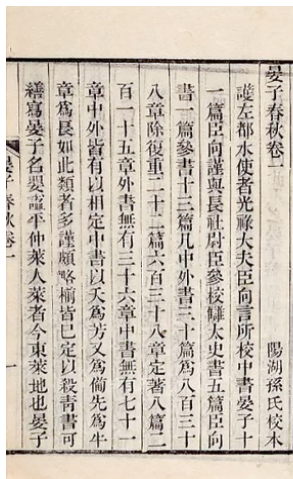 晏子春秋卷一
陽湖孫氏校本
護左都水使者光祿大夫臣向言所校中書晏子十
一篇臣向謹與長社尉臣參校讎太史書五篇臣向
書一篇參書十三篇凡中外書三十篇爲八百三十
八章除復重二十二篇六百三十八章定著八篇二
百一十五章外書無有三十六章中書無有七十一
章中外皆有以相定中書以夭爲芳又爲備先爲牛
章爲長如此類者多謹頗略椾皆已定以殺青書可
繕寫晏子名嬰謚平仲萊人萊者今東萊地也晏子
晏子春秋卷一
一